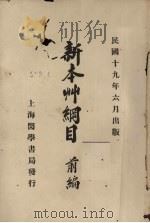 民國十九年六月出版
新本艸綱目 前編
上海閱學書局發行